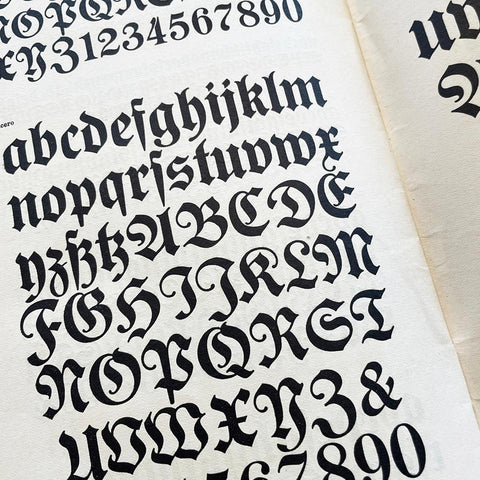 NOPQRS
XYZ1234567890
cero
abcdefghijklm
nopqrſstuvwx
yzßtzABCDE
FGHIJKLM
NOPQRST
UVWXYZ&
4567890